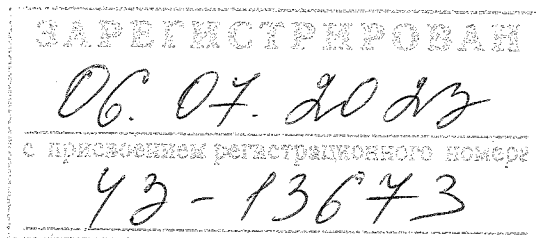 ЗАРЕГИСТРИРОВАН
06.07.2023
с присвоением регистрационного номера
УЗ-13673